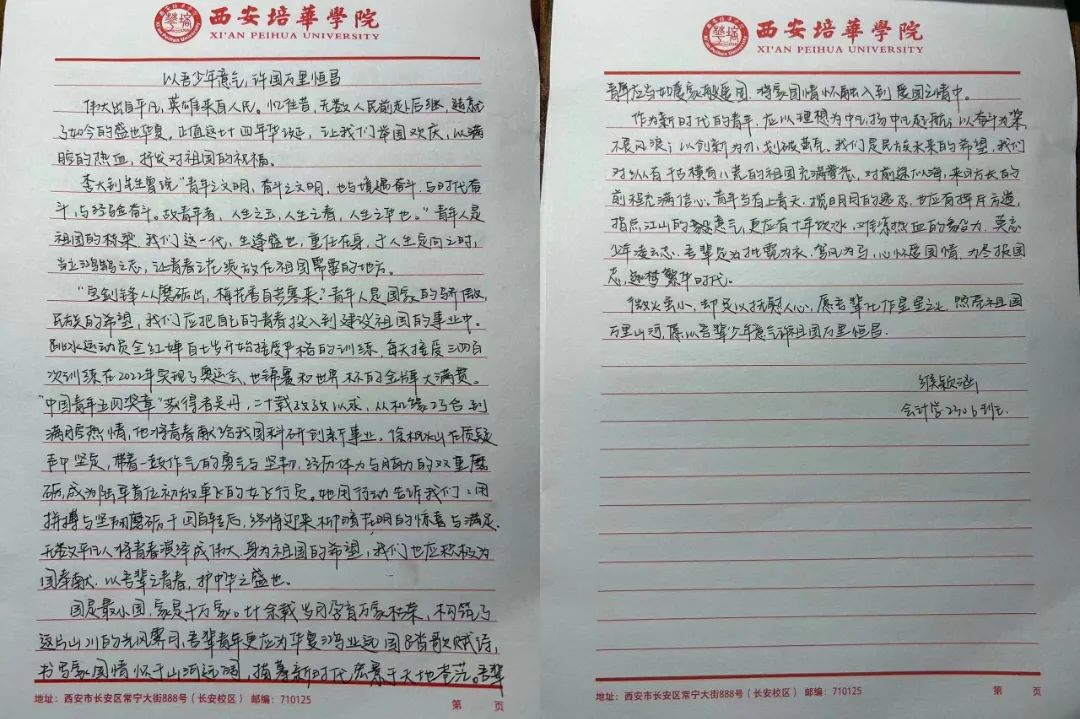 西安培華學院
XI'AN PEIHUA UNIVERSITY
以吾少年意气,许国万里恒昌
伟大出自平凡,英雄来自人民。忆往昔,无数人民前赴后继,造就
了如今的盛世华夏。正值七十四年华诞,让我们举国欢庆,以满
腔的热血,抒发对祖国的祝福。
李大钊先生曾说"青年之文明,奋斗之文明,也与境遇奋斗,与时代奋
斗,与经验奋斗。故青年者,人生之王,人生之春,人生之华也。"青年人是
祖国的桥梁,我们这一代,生逢盛世,重任在身,于人生定向之时,
当立鸿鹄之志,让青春之花绽放在祖国需要的地方。
"宝剑锋从磨砺出,梅花香自苦寒来。"青年人是国家的骄傲,
民族的希望,我们应把自己的青春投入到建设祖国的事业中。
跳水运动员全红婵自七岁开始接受严格的训练,每天接受三四百
次训练,在2022年实现了奥运会、世锦赛和世界杯的金牌大满贯。
"中国青年五四奖章"获得者吴丹,二十载孜孜以求,从机缘巧合到
满腔热情,他将青春献给我国科研创新事业。徐枫灿在质疑
声中坚定,带着一鼓作气的勇气与坚韧,经历体力与脑力的双重磨
砺,成为陆军首位初放单飞的女飞行员。她用行动告诉我们:用
拼搏与坚韧磨砺千回百转后,终将迎来柳暗花明的惊喜与满足。
无数平凡人将青春演绎成伟大,身为祖国的希望,我们也应积极为
国奉献,以吾辈之青春,护中华之盛世。
国是最小国,家是千万家。廿余载岁月孕育万家枯荣,构筑了
这片山川的光风霁月,吾辈青年更应为华夏鸿业远图踏歌赋诗,
书写家国情怀于山河远阔,描摹新时代宏景于天地苍茫。吾辈
地址:西安市长安区常宁大街888号(长安校区) 邮编:710125
第 页
西安培華學院
XI'AN PEIHUA UNIVERSITY
青年应当如爱家般爱国,将家国情怀融入到爱国之情中。
作为新时代的青年,应以理想为帆,扬帆起航;以奋斗为桨,
不畏风浪;以创新为刃,划破黄荒。我们是民族未来的希望,我们
对纵有千古横有八荒的祖国充满赞誉,对前途似海,来日方长的
前程充满信心。青年当有上青天、揽明月的远志,也应有挥斥方遒,
指点江山的豪意气,更应有十年饮冰,难凉热血的奋力。莫忘
少年凌云志,吾辈定为披霓为衣,驾风为马,心怀爱国情,为尽报国
志,逐梦繁华时代。
微火虽小,却足以抚慰人心,愿吾辈化作星星之火,照亮祖国
万里山河,愿以吾辈少年意气许祖国万里恒昌。
颖涵
会计学2306班
地址:西安市长安区常宁大街888号(长安校区) 邮编:710125
第 页